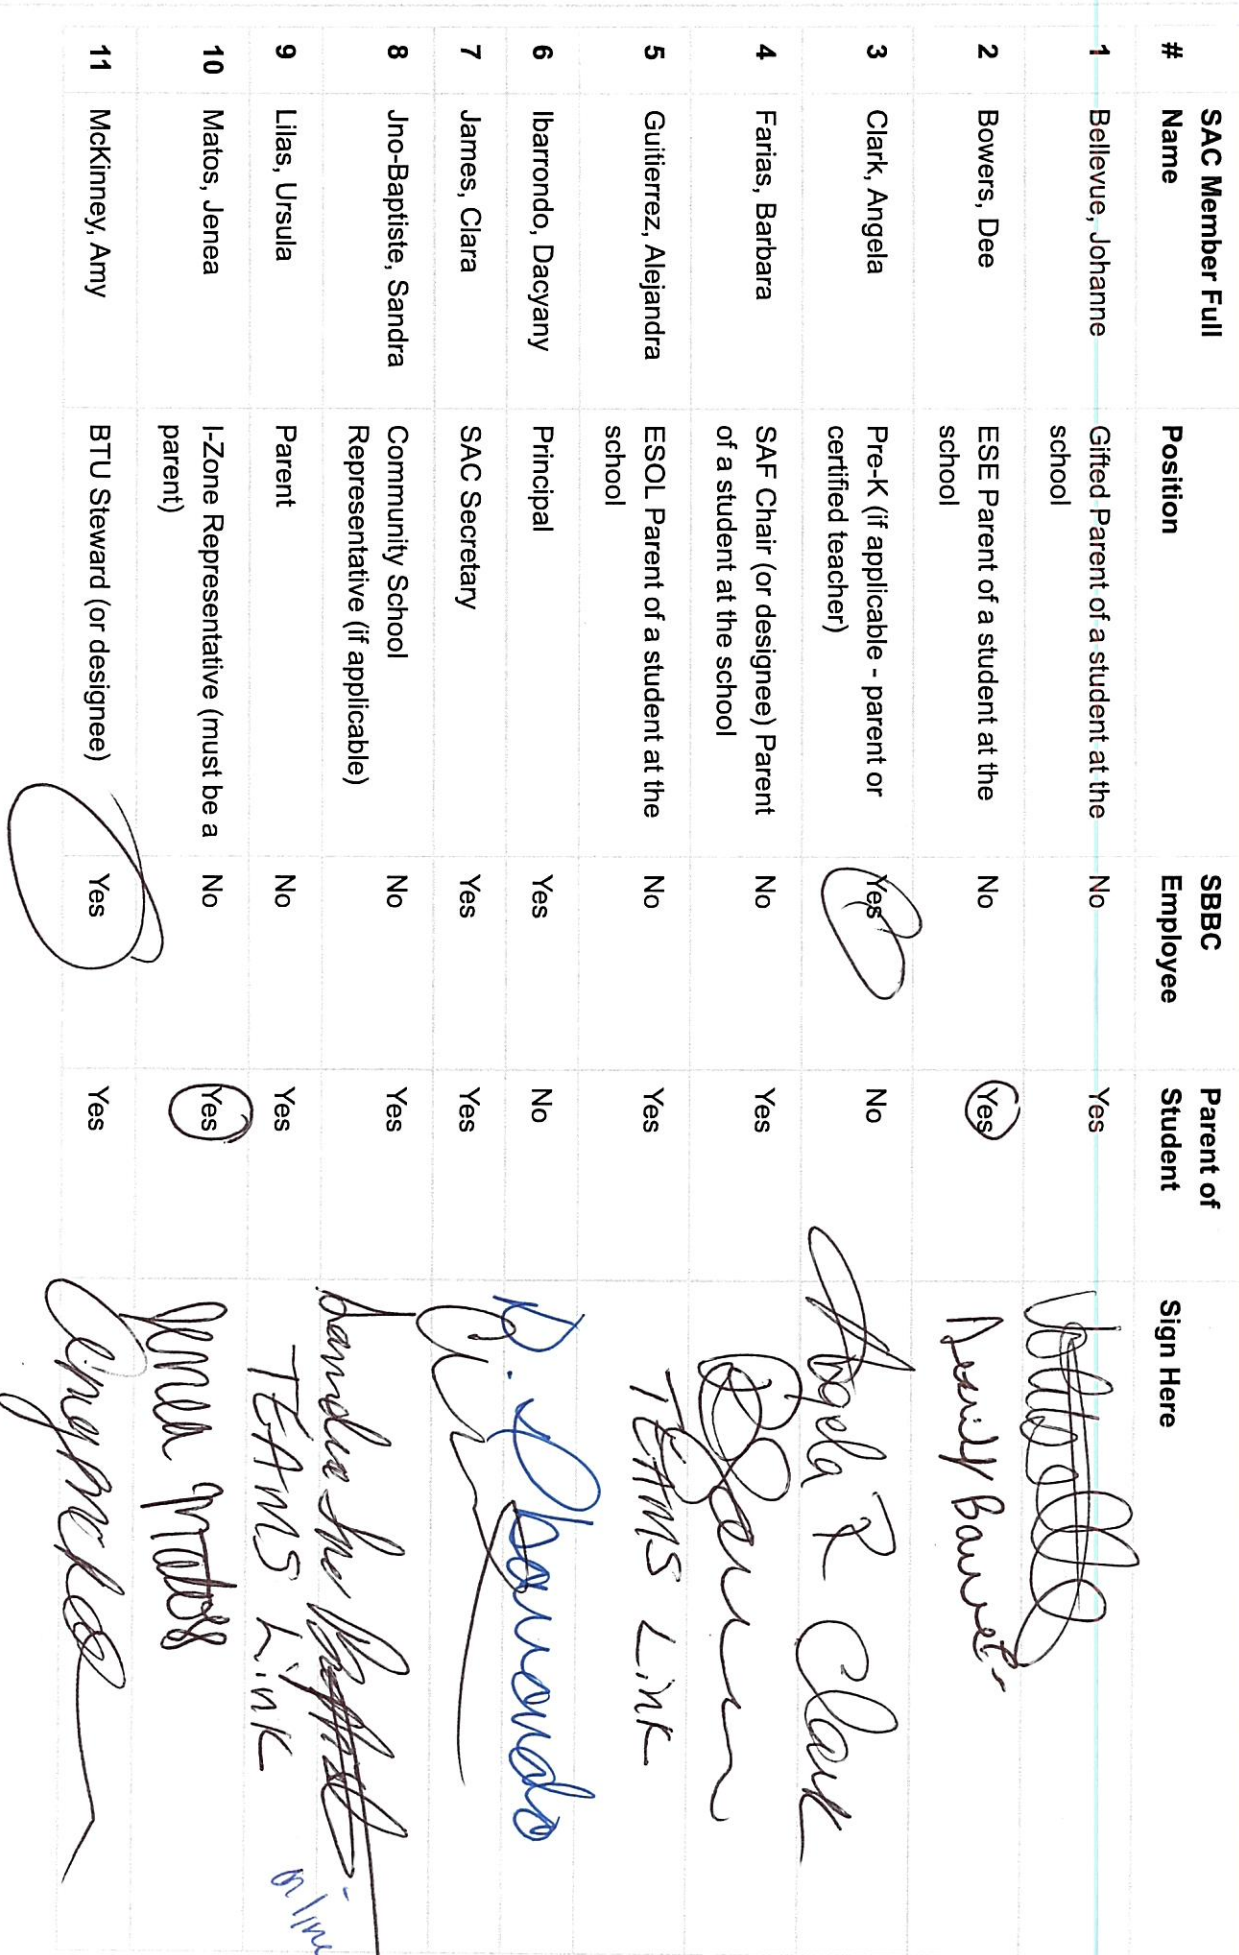 SAC Member Full
# Name Position SBBC Employee Parent of Student Sign Here
1 Bellevue, Johanne Gifted Parent of a student at the school No Yes
2 Bowers, Dee ESE Parent of a student at the school No Yes
3 Clark, Angela Pre-K (if applicable - parent or certified teacher) Yes No Angela R Clark
4 Farias, Barbara SAF Chair (or designee) Parent of a student at the school No Yes
5 Guitierrez, Alejandra ESOL Parent of a student at the school No Yes TEAMS Link
6 Ibarrondo, Dacyany Principal Yes No D. Ibarrondo
7 James, Clara SAC Secretary Yes Yes
8 Jno-Baptiste, Sandra Community School Representative (if applicable) No Yes Sandra Jno Baptiste
9 Lilas, Ursula Parent No Yes TEAMS Link online
10 Matos, Jenea I-Zone Representative (must be a parent) No Yes Jenea Matos
11 McKinney, Amy BTU Steward (or designee) Yes Yes